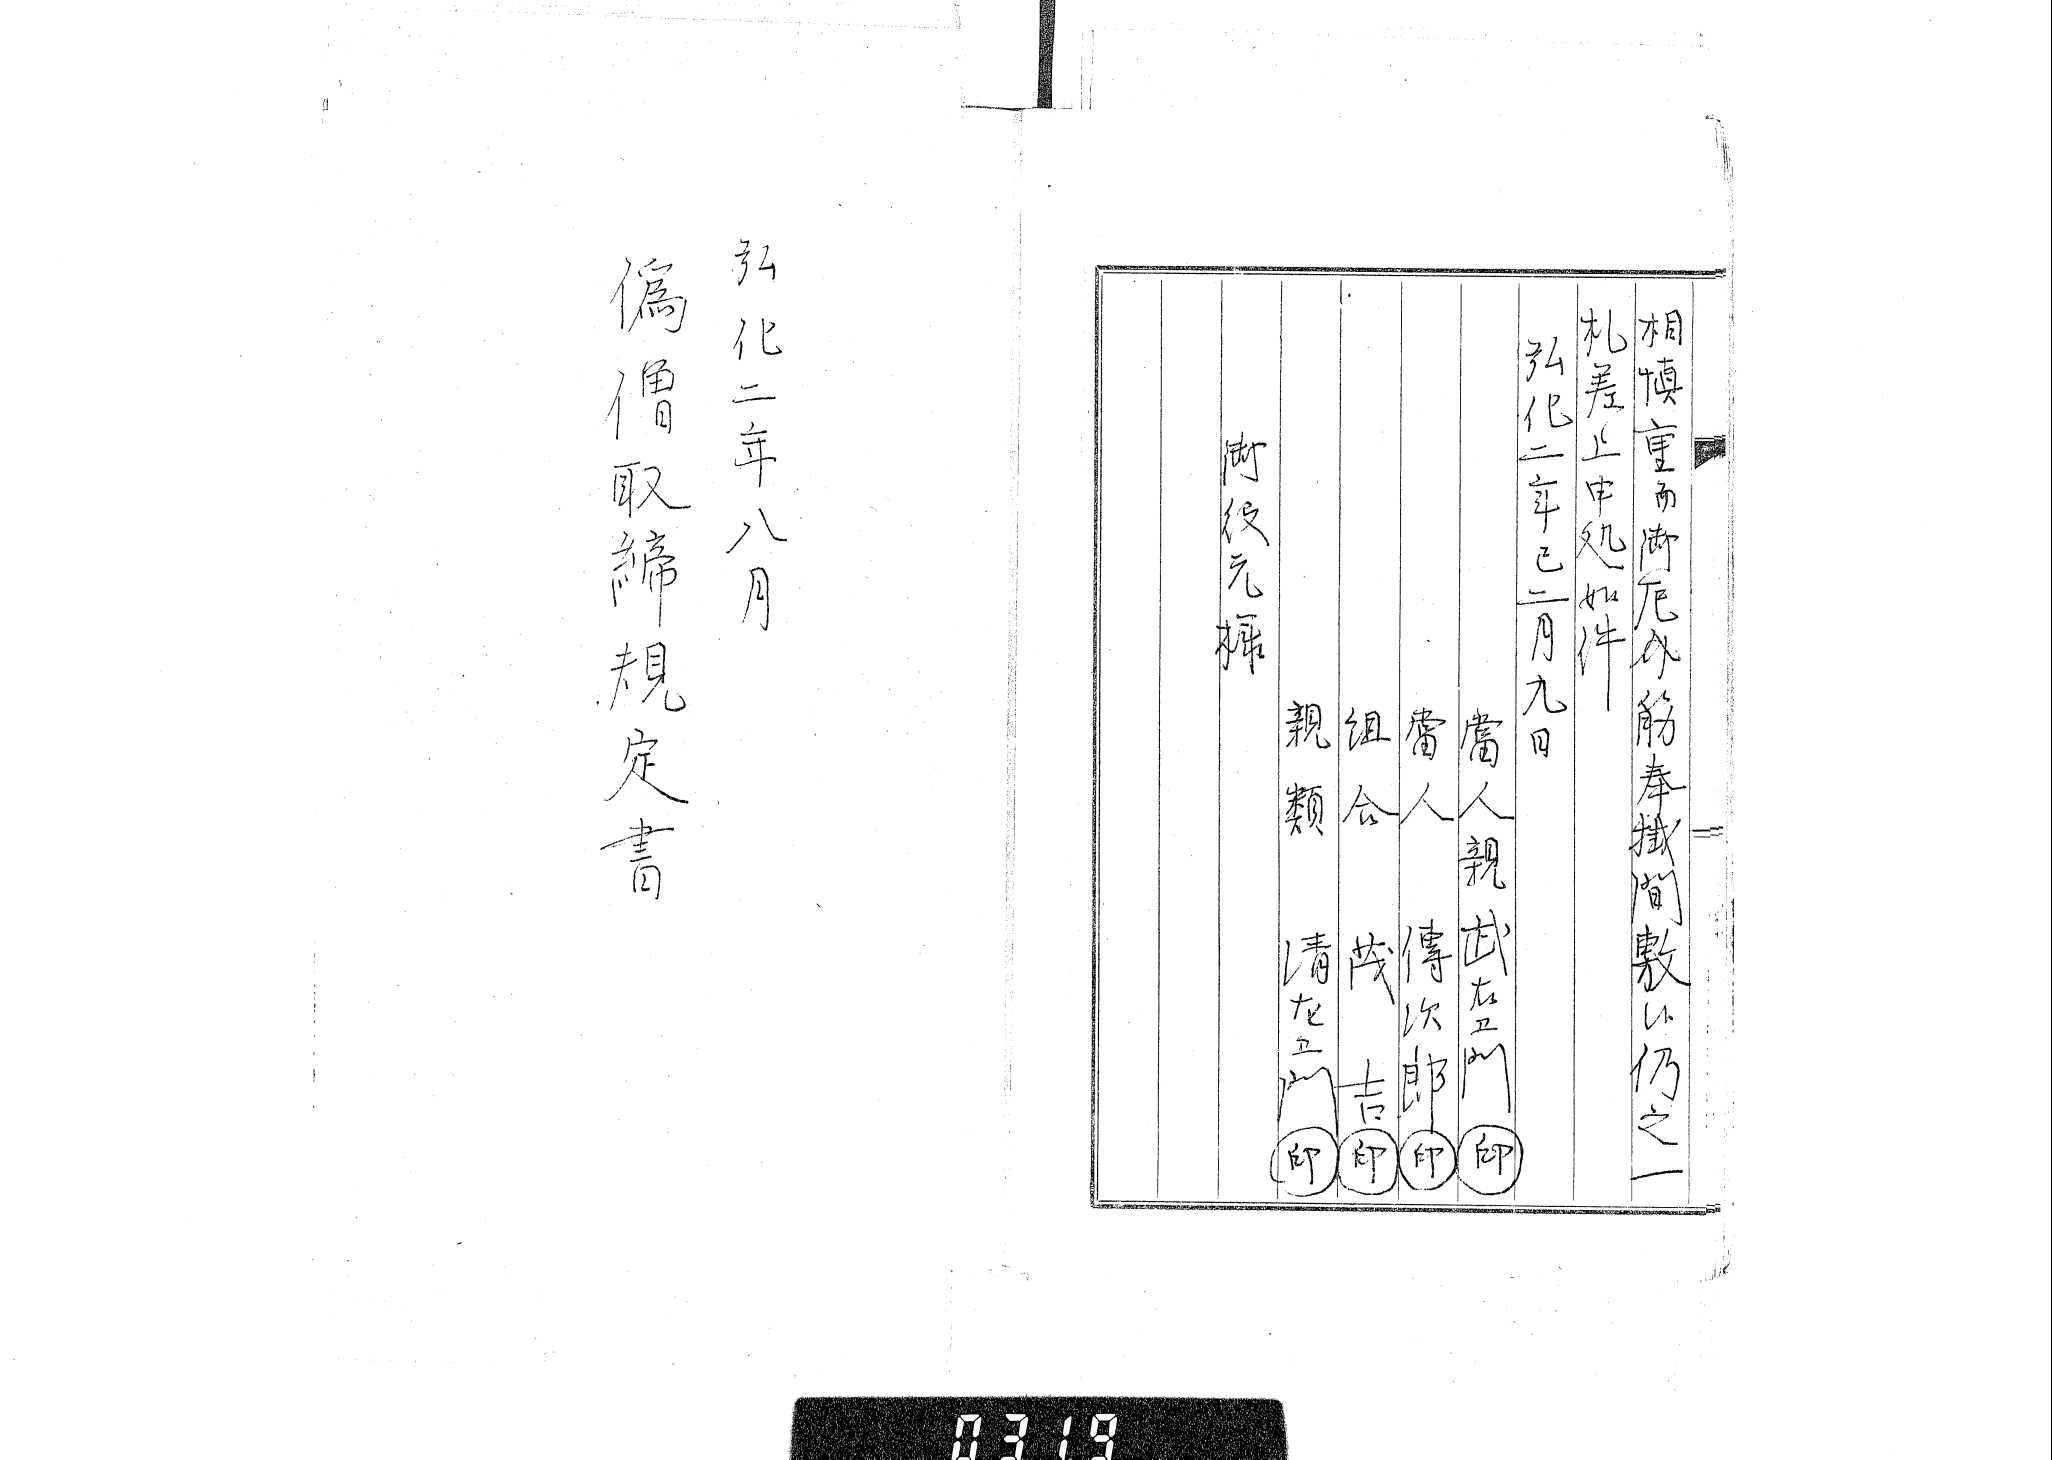 相慎重而御厄介筋奉掛間敷候仍之一
札差上申処如件
弘化二年巳二月九日
當人親 武右衛門 印
當人 傳次郎 印
組合 茂吉 印
親類 清左衛門 印
御役元様
弘化二年八月
偽僧取締規定書
0319